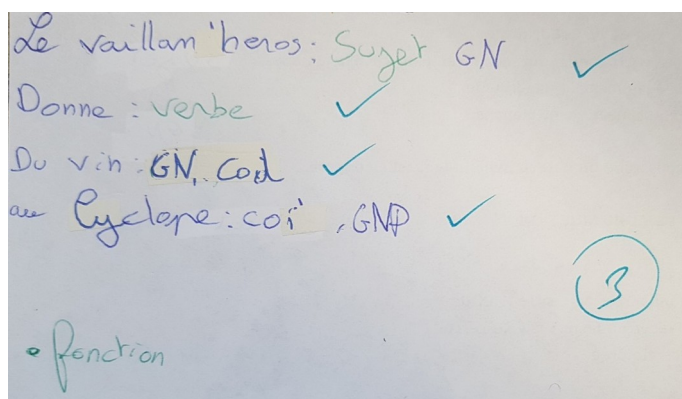 Le vaillan'heros: Sujet GN
Donne: verbe
Du vin: GN, Cod
au Cyclope: coi, GNP
3
• fonction